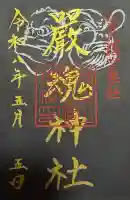 嚴魂神社
令和八年五月 五日